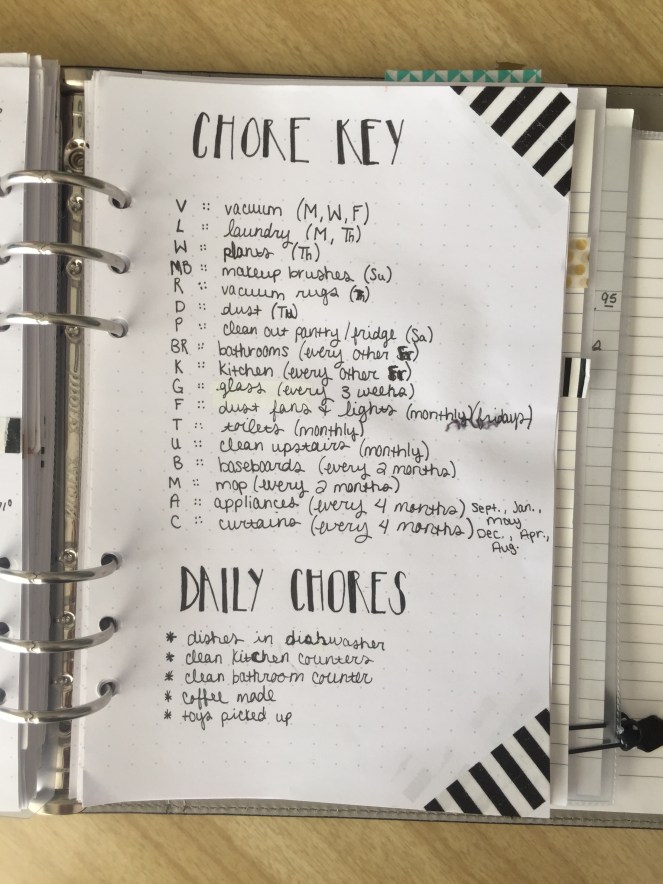 CHORE KEY
V :: vacuum (M, W, F)
L :: laundry (M, Th)
W :: plants (Th)
MB :: makeup brushes (Su)
R :: vacuum rugs (Th)
D :: dust (Th)
P :: clean out pantry/fridge (Sa)
BR :: bathrooms (every other Fr)
K :: kitchen (every other Fr)
G :: glass (every 3 weeks)
F :: dust fans & lights (monthly) (fridays)
T :: toilets (monthly)
U :: clean upstairs (monthly)
B :: baseboards (every 2 months)
M :: mop (every 2 months)
A :: appliances (every 4 months) Sept., Jan., May
C :: curtains (every 4 months) Dec., Apr., Aug.
DAILY CHORES
* dishes in dishwasher
* clean kitchen counters
* clean bathroom counter
* coffee made
* toys picked up
95
2